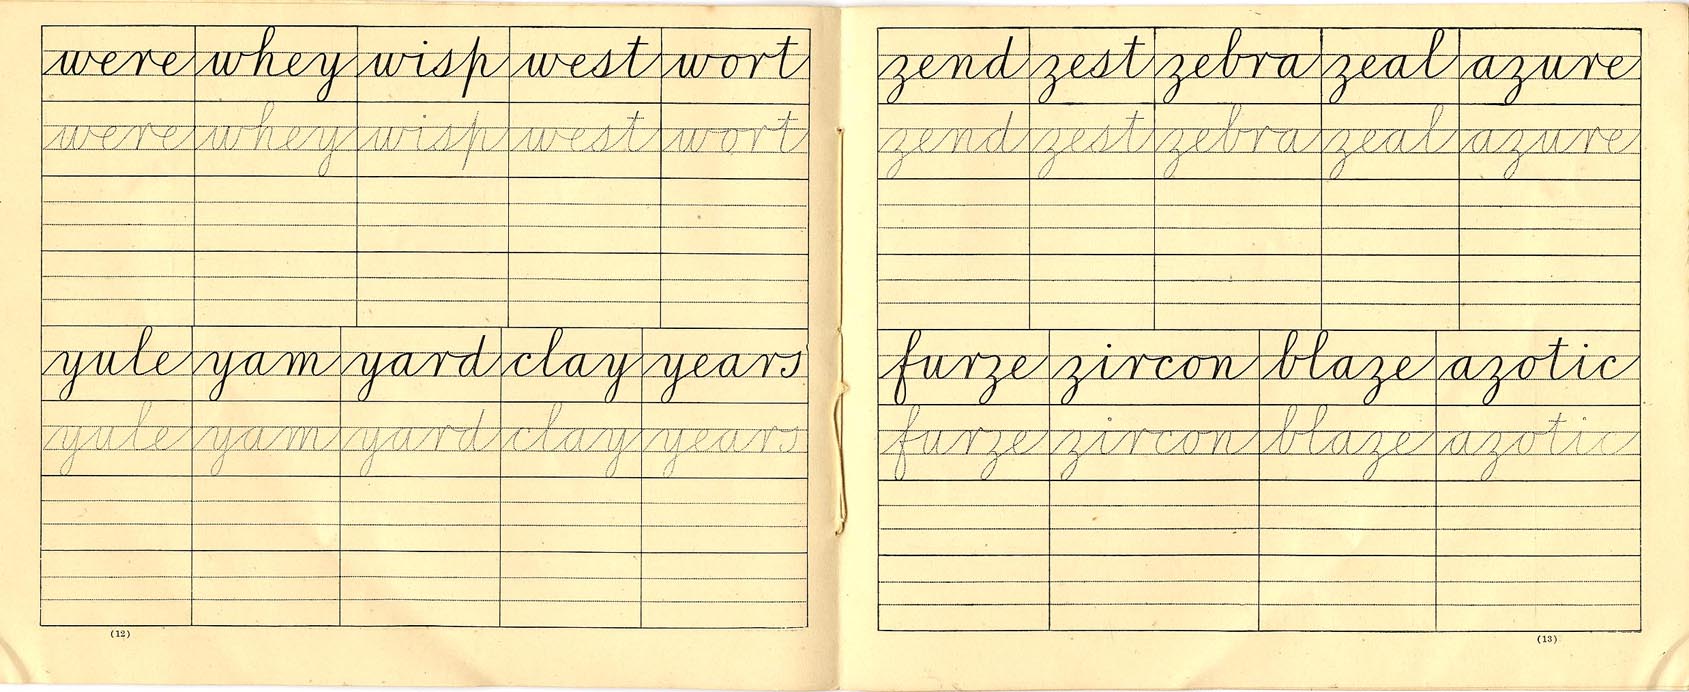 were whey wisp west wort
were whey wisp west wort
yule yam yard clay years
yule yam yard clay years
(12)
zend zest zebra zeal azure
zend zest zebra zeal azure
furze zircon blaze azotic
furze zircon blaze azotic
(13)